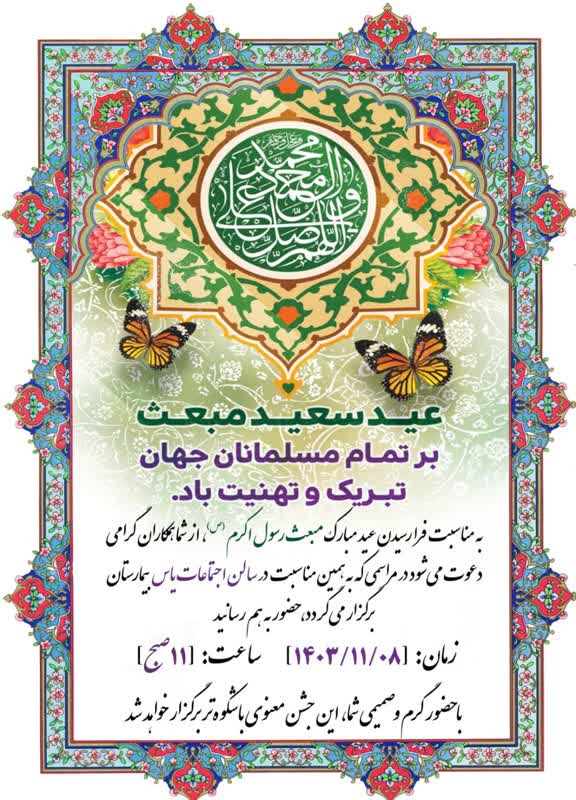 اللهم صل علی محمد و آل محمد و عجل فرجهم
عید سعید مبعث
بر تمام مسلمانان جهان
تبریک و تهنیت باد.
به مناسبت فرارسیدن عید مبارک مبعث رسول اکرم (ص)، از شما همکاران گرامی
دعوت می‌شود در مراسمی که به همین مناسبت در سالن اجتماعات یاس بیمارستان
برگزار می‌گردد، حضور به هم رسانید
زمان: [۱۴۰۳/۱۱/۰۸] ساعت: [۱۱ صبح]
با حضور گرم و صمیمی شما، این جشن معنوی باشکوه‌تر برگزار خواهد شد